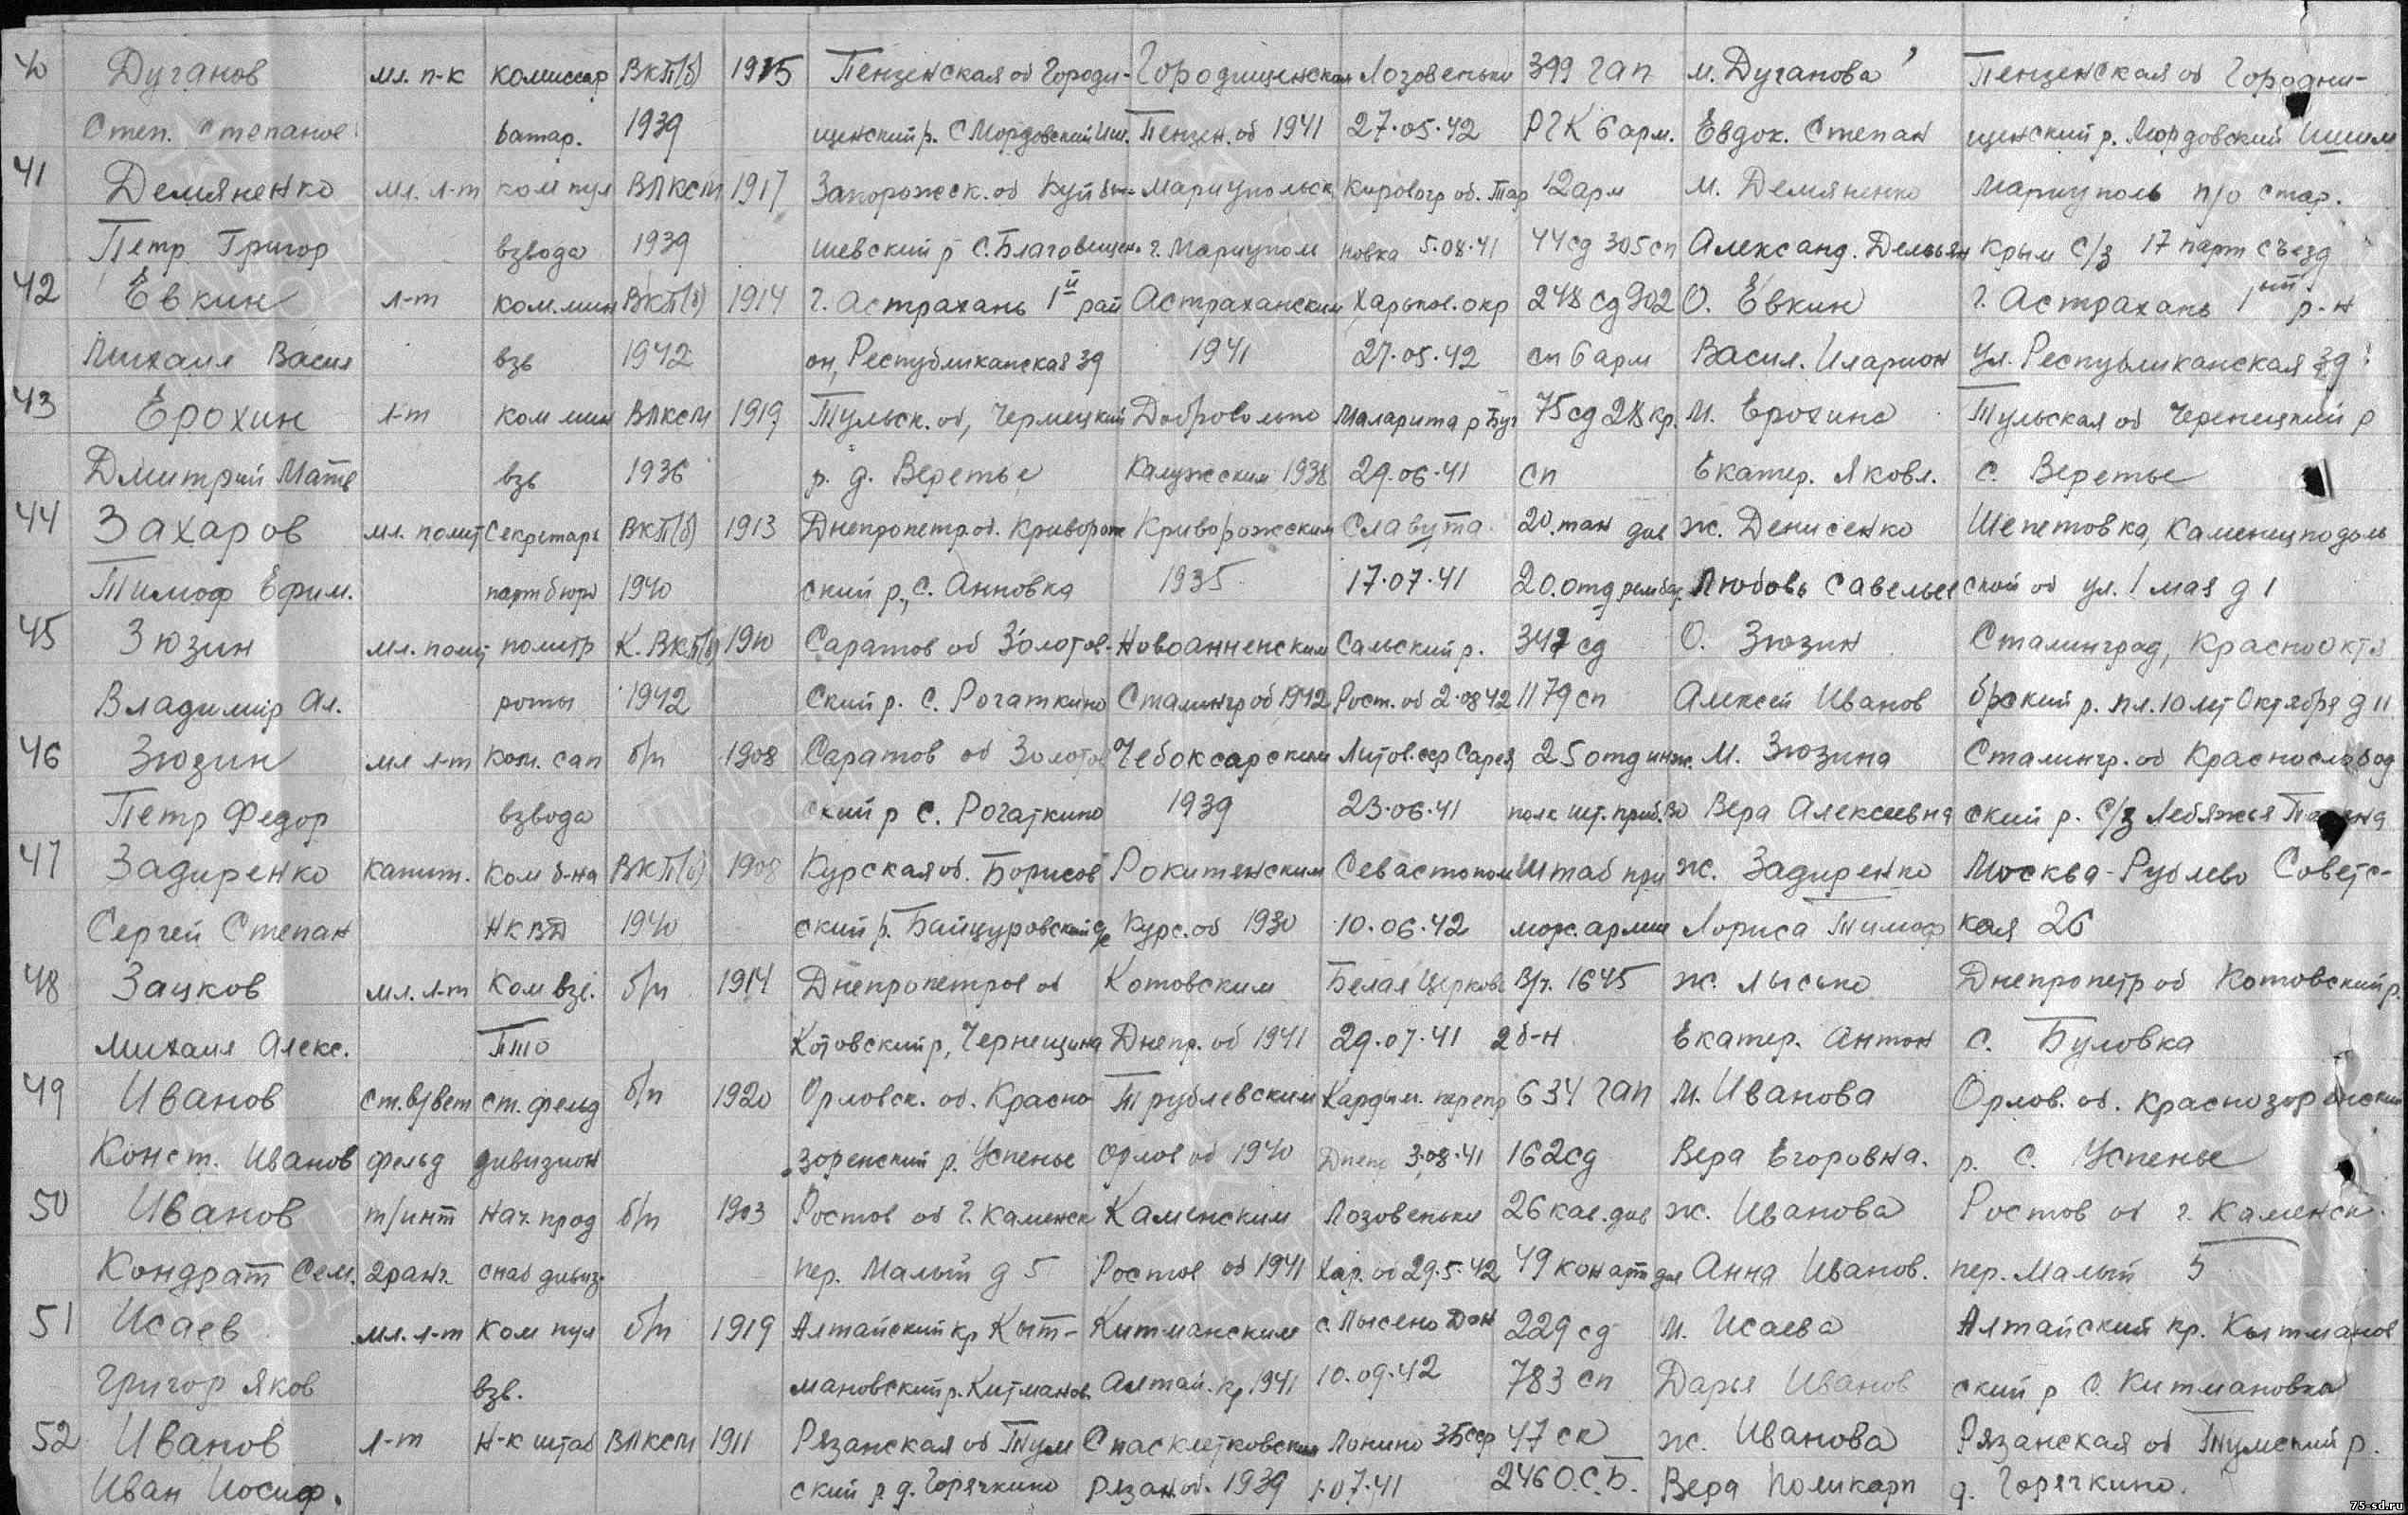 40 Дуганов мл. п-к комиссар ВКП(б) 1915 Пензенская об Городи- Городищенская Лозовеньки 399 гап м. Дуганова Пензенская об Городи-
Степ. Степанов батар. 1939 щенский р. С Мордовский Иш. Пензен. об 1941 27.05.42 РГК 6 арм. Евдок. Степан щенский р. Мордовский Ишим
41 Демяненко мл. л-т ком пул ВЛКСМ 1917 Запорожск. об Куйбы- Мариупольск. Кировогр об. Тар 12 арм м. Демяненко Мариуполь п/о стар.
Петр Григор взвода 1939 шевский р С. Благовещен. г. Мариупол новка 5.08.41 44 сд 305 сп Александ. Демьян Крым С/з 17 парт съезд
42 Евкин л-т ком.мин ВКП(б) 1914 г. Астрахань 1й рай Астраханским Харьков. окр 248 сд 902 О. Евкин г. Астрахань 1ый р-н
Михаил Васил взв 1942 он, Республиканская 39 1941 27.05.42 сп 6 арм Васил. Иларион ул. Республиканская 39
43 Ерохин л-т ком мин ВЛКСМ 1919 Тульск. об, Чернецкий Добровольно Маларита р Буг 75 сд 28 кр. м. Ерохина Тульская об Черницкий р
Дмитрий Матв взв 1936 р. д. Веретье Калужским 1938 29.06.41 сп Екатер. Яковл. с. Веретье
44 Захаров мл. полит Секретарь ВКП(б) 1913 Днепропетр об. Криворож Криворожским Славута 20. тан див ж. Денисенко Шепетовка, Каменецподоль
Тимоф Ефим. партбюро 1940 ский р., С. Анновка 1935 17.07.41 20. отд рем бат. Любовь Савельев ской об ул. 1 мая д 1
45 Зюзин мл. полит политр К. ВКП(б) 1910 Саратов об Золотов- Новоанненским Сальский р. 347 сд О. Зюзин Сталинград, Краснооктя
Владимир Ал. роты 1942 Ский р. С. Рогаткино Сталингр об 1942 Рост. об 2.08 42 1179 сп Алексей Иванов брский р. пл. 10 лет Октября д 11
46 Зюзин мл л-т ком. сап б/п 1908 Саратов об Золотов Чебоксарским Литов. сср 25 отд инж. М. Зюзина Сталингр. об Краснослобод
Петр Федор взвода ский р с. Рогаткино 1939 23.06.41 полк шт. приб. ВО Вера Алексеевна ский р. С/з Лебяжья
47 Задиренко капит. Ком б-на ВКП(б) 1908 Курская об. Борисов Рокитенским Севастопол Штаб при ж. Задиренко Москва - Рублево Советс-
Сергей Степан НКВД 1940 ский р. Байцуровский с/с Курс. об 1930 10.06.42 мор. армии Лориса Тимоф кая 26
48 Зацков мл. л-т Ком взв. б/п 1914 Днепропетров об Котовским Белая Церковь В/ч. 1645 ж. Лысько Днепропетр об Котовский р.
Михаил Алекс. ПТО Котовский р, Чернещина Днепр. об 1941 29.07.41 2 б-н Екатер. Антон с. Буловка
49 Иванов ст. в/вет ст. фельд б/п 1920 Орловск. об. Красно- Трублевским Кардым. перепр 634 гап м. Иванова Орлов. об. Краснозоренский
Конст. Иванов фельд дивизион зоренский р. Успенье Орлов об 1940 Днепр 3.08.41 162 сд Вера Егоровна. р. с. Успенье
50 Иванов т/инт Нач. прод б/п 1903 Ростов об г. Каменск Каменским Лозовеньки 26 кав. див ж. Иванова Ростов об г. Каменск.
Кондрат Сем. 2 ранг. снаб дивиз. пер. Малый д 5 Ростов об 1941 Хар. об 29.5.42 49 кон арт див Анна Иванов. пер. Малый 5
51 Исаев мл. л-т Ком пул б/п 1919 Алтайский кр Кыт- Китманским с. Лысено Дон 229 сд м. Исаева Алтайский кр. Кытманов
Григор Яков взв. мановский р. Китманов. Алтай. кр 1941 10.09.42 783 сп Дарья Иванов ский р С. Китмановка
52 Иванов л-т Н-к штаб ВЛКСМ 1911 Рязанская об Тум Спасклетковским Лонино Збсср 47 ск ж. Иванова Рязанская об Тумский р.
Иван Иосиф. ский р. д. Горячкино Рязан. об. 1939 1.07.41 246 О.С.Б. Вера Поликарп д. Горячкино.
75-sd.ru